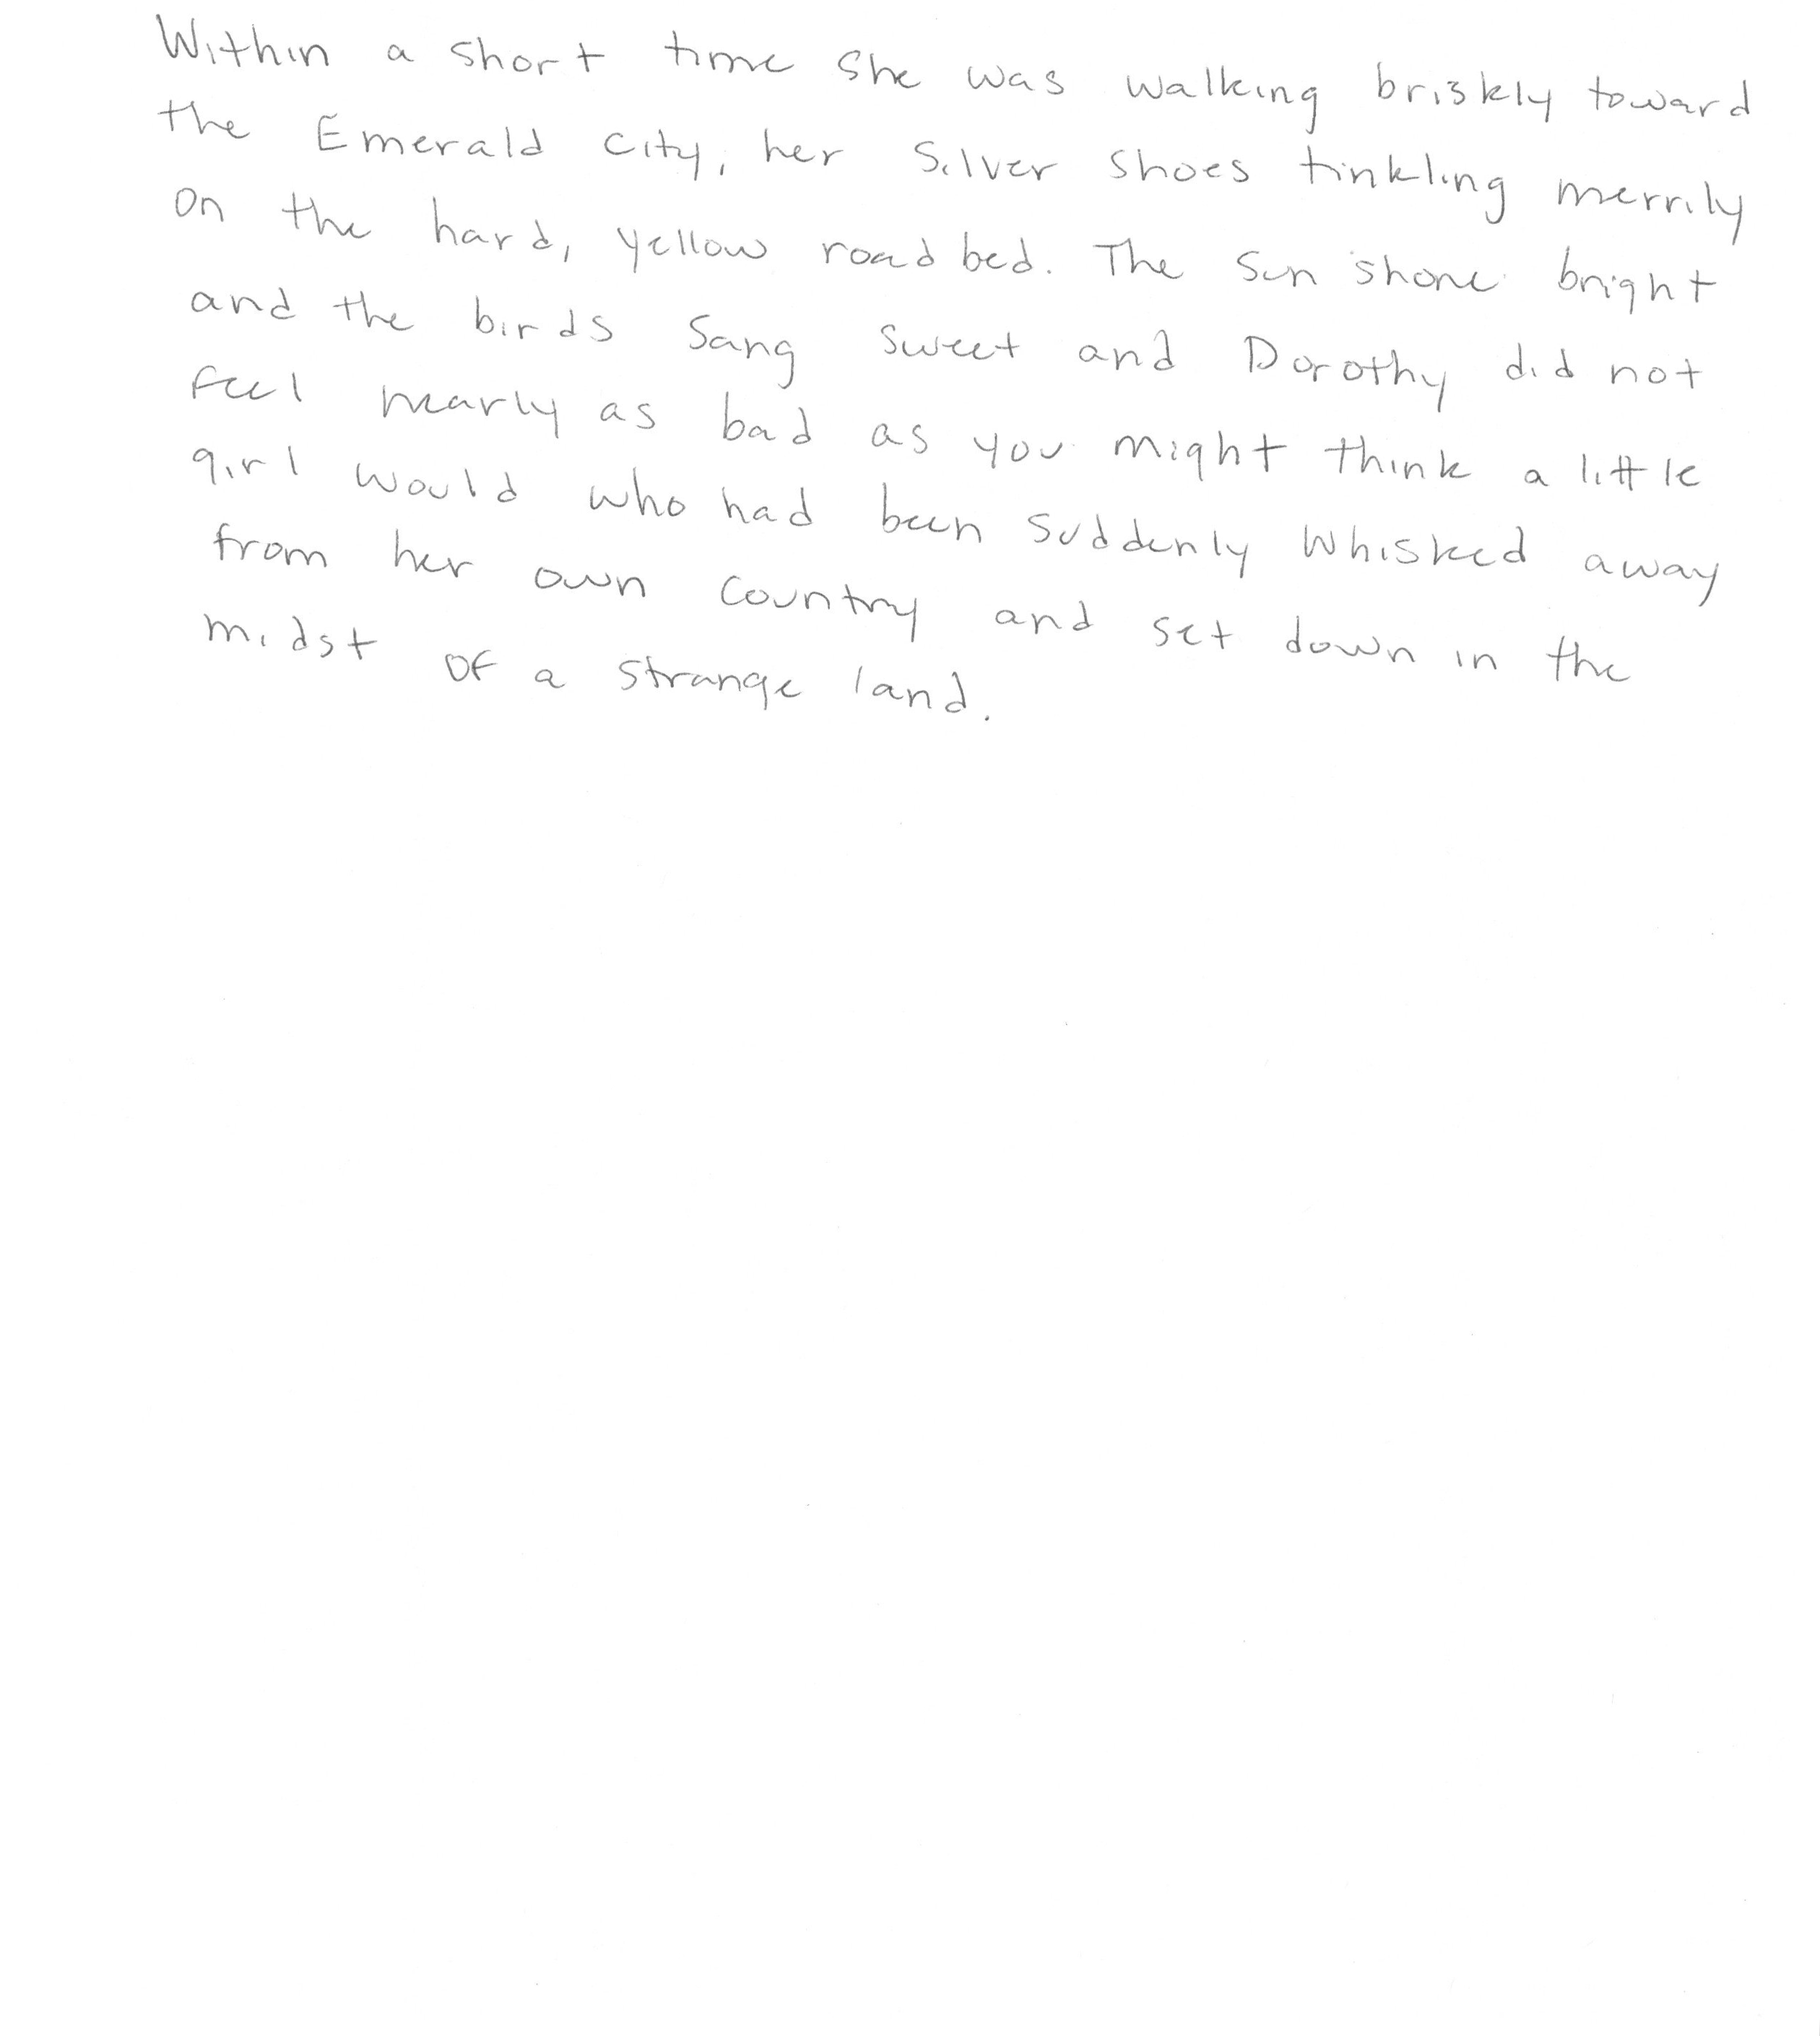 Within a short time she was walking briskly toward
the Emerald City, her Silver Shoes tinkling merrily
on the hard, yellow roadbed. The sun shone bright
and the birds sang sweet and Dorothy did not
feel nearly as bad as you might think a little
girl would who had been suddenly whisked away
from her own country and set down in the
midst of a strange land.